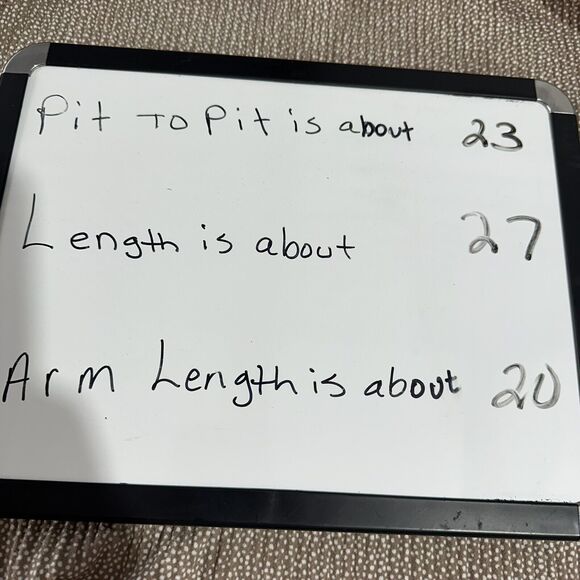 Pit To Pit is about 23
Length is about 27
Arm Length is about 20